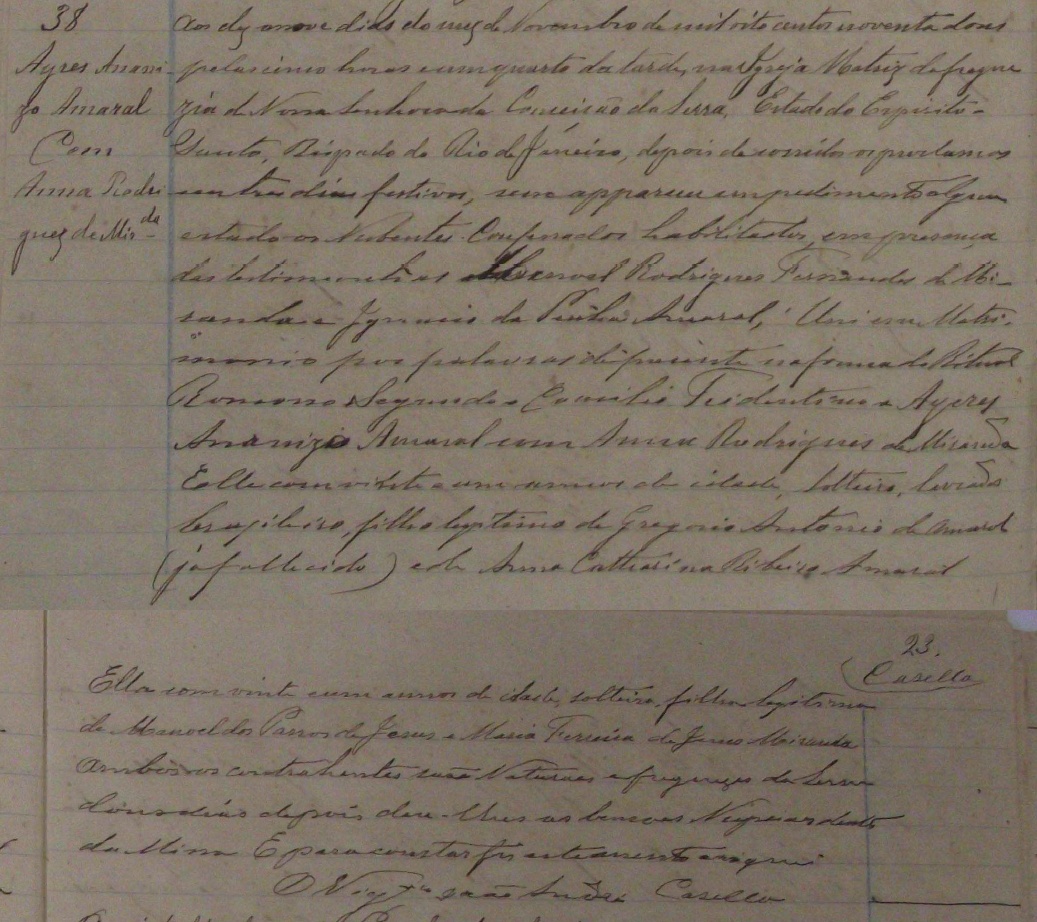 38
Ayres Anani-
zo Amaral
Com
Anna Rodri
guez de Mir.da
Aos dez nove dias do mez de Novembro de mil oito centos noventa dous
pelas cinco horas e um quarto da tarde, na Igreja Matriz da fregue
zia de Nossa Senhora da Conceicão da Serra, Estado do Espirito-
Santo, Bispado do Rio de Janeiro, depois de corridos os proclamos
em tres dias festivos, sem apparecer empedimento algum
estado os Nubentes Competados habilitados, em presença
das testemunhas Manoel Rodrigues Fernandes de Mi-
randa e Ignacio da Penha Amaral, Uni em Matri-
monio por palavras de presente na forma do Ritual
Romano Segundo o Concilio Tridentino a Ayres
Ananizio Amaral com Anna Rodrigues de Miranda
Eelle com vinte e um annos de idade, Solteiro, lavrador
brazileiro, filho legitimo de Gregorio Antonio do Amaral
(já fallecido) e de Anna Catharina Ribeiro Amaral
23.
Casella
Ella com vinte e um annos de idade, solteira, filha legitima
de Manoel dos Passos de Jesus e Maria Ferreira de Jesus Miranda
Ambos os contrahentes são Naturaes e freguezes da Serra
dous dias depois dei-lhes as bencoes Nupciaes dentro
da Missa E para constar fiz este assento assignei
O Vig.rio João André Casella